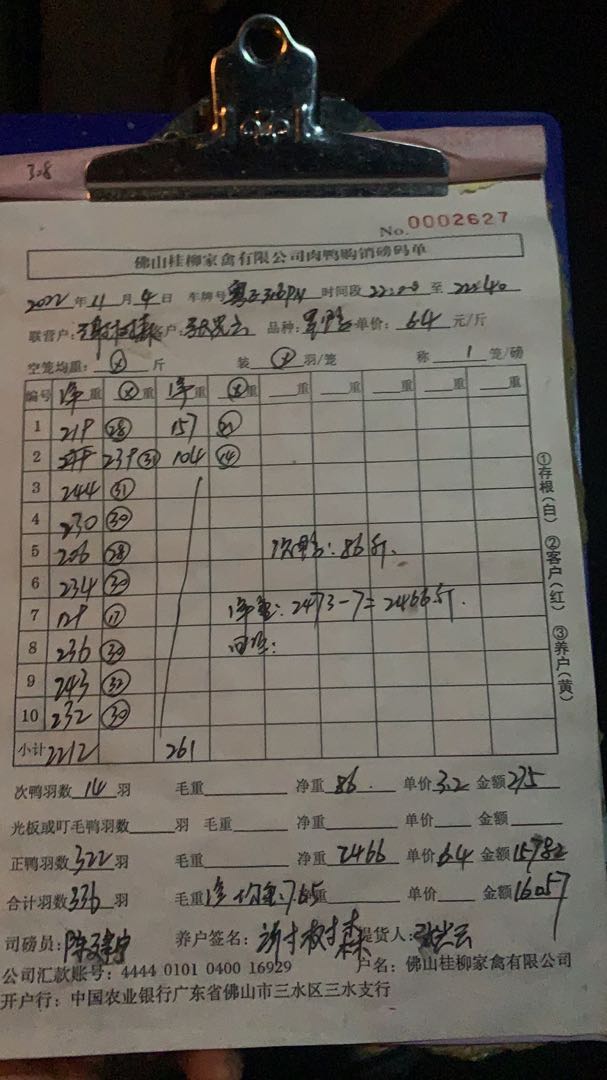 308
No. 0002627
佛山桂柳家禽有限公司肉鸭购销磅码单
2022年11月4日 车牌号 时间段22:00至22:40
联营户: 客户: 品种: 单价:6.4元/斤
空笼均重:斤 装羽/笼 称1笼/磅
编号 净重 重 净重 重 重 重 重 重 重 重
1 219 28 157 21
2 239 31 104 14
3 244 31
4 230 30
5 206 28
6 234 30
7 129 17
8 236 30
9 243 32
10 232 30
次鸭:86斤.
净重:2473-7=2466斤.
小计 2212 261
①存根(白) ②客户(红) ③养户(黄)
次鸭羽数14羽 毛重 净重86. 单价3.2 金额275
光板或叮毛鸭羽数羽 毛重 净重 单价 金额
正鸭羽数322羽 毛重 净重2466 单价6.4 金额15782
合计羽数336羽 毛重 净 均重:7.65 单价 金额16057
司磅员: 养户签名: 提货人:
公司汇款账号:4444 0101 0400 16929 户名:佛山桂柳家禽有限公司
开户行:中国农业银行广东省佛山市三水区三水支行